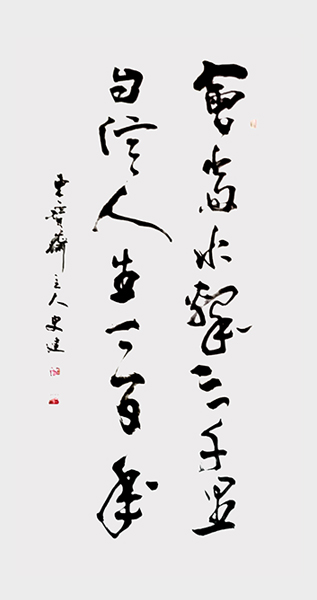 會當水擊三千里
自信人生二百年
齋主人史建